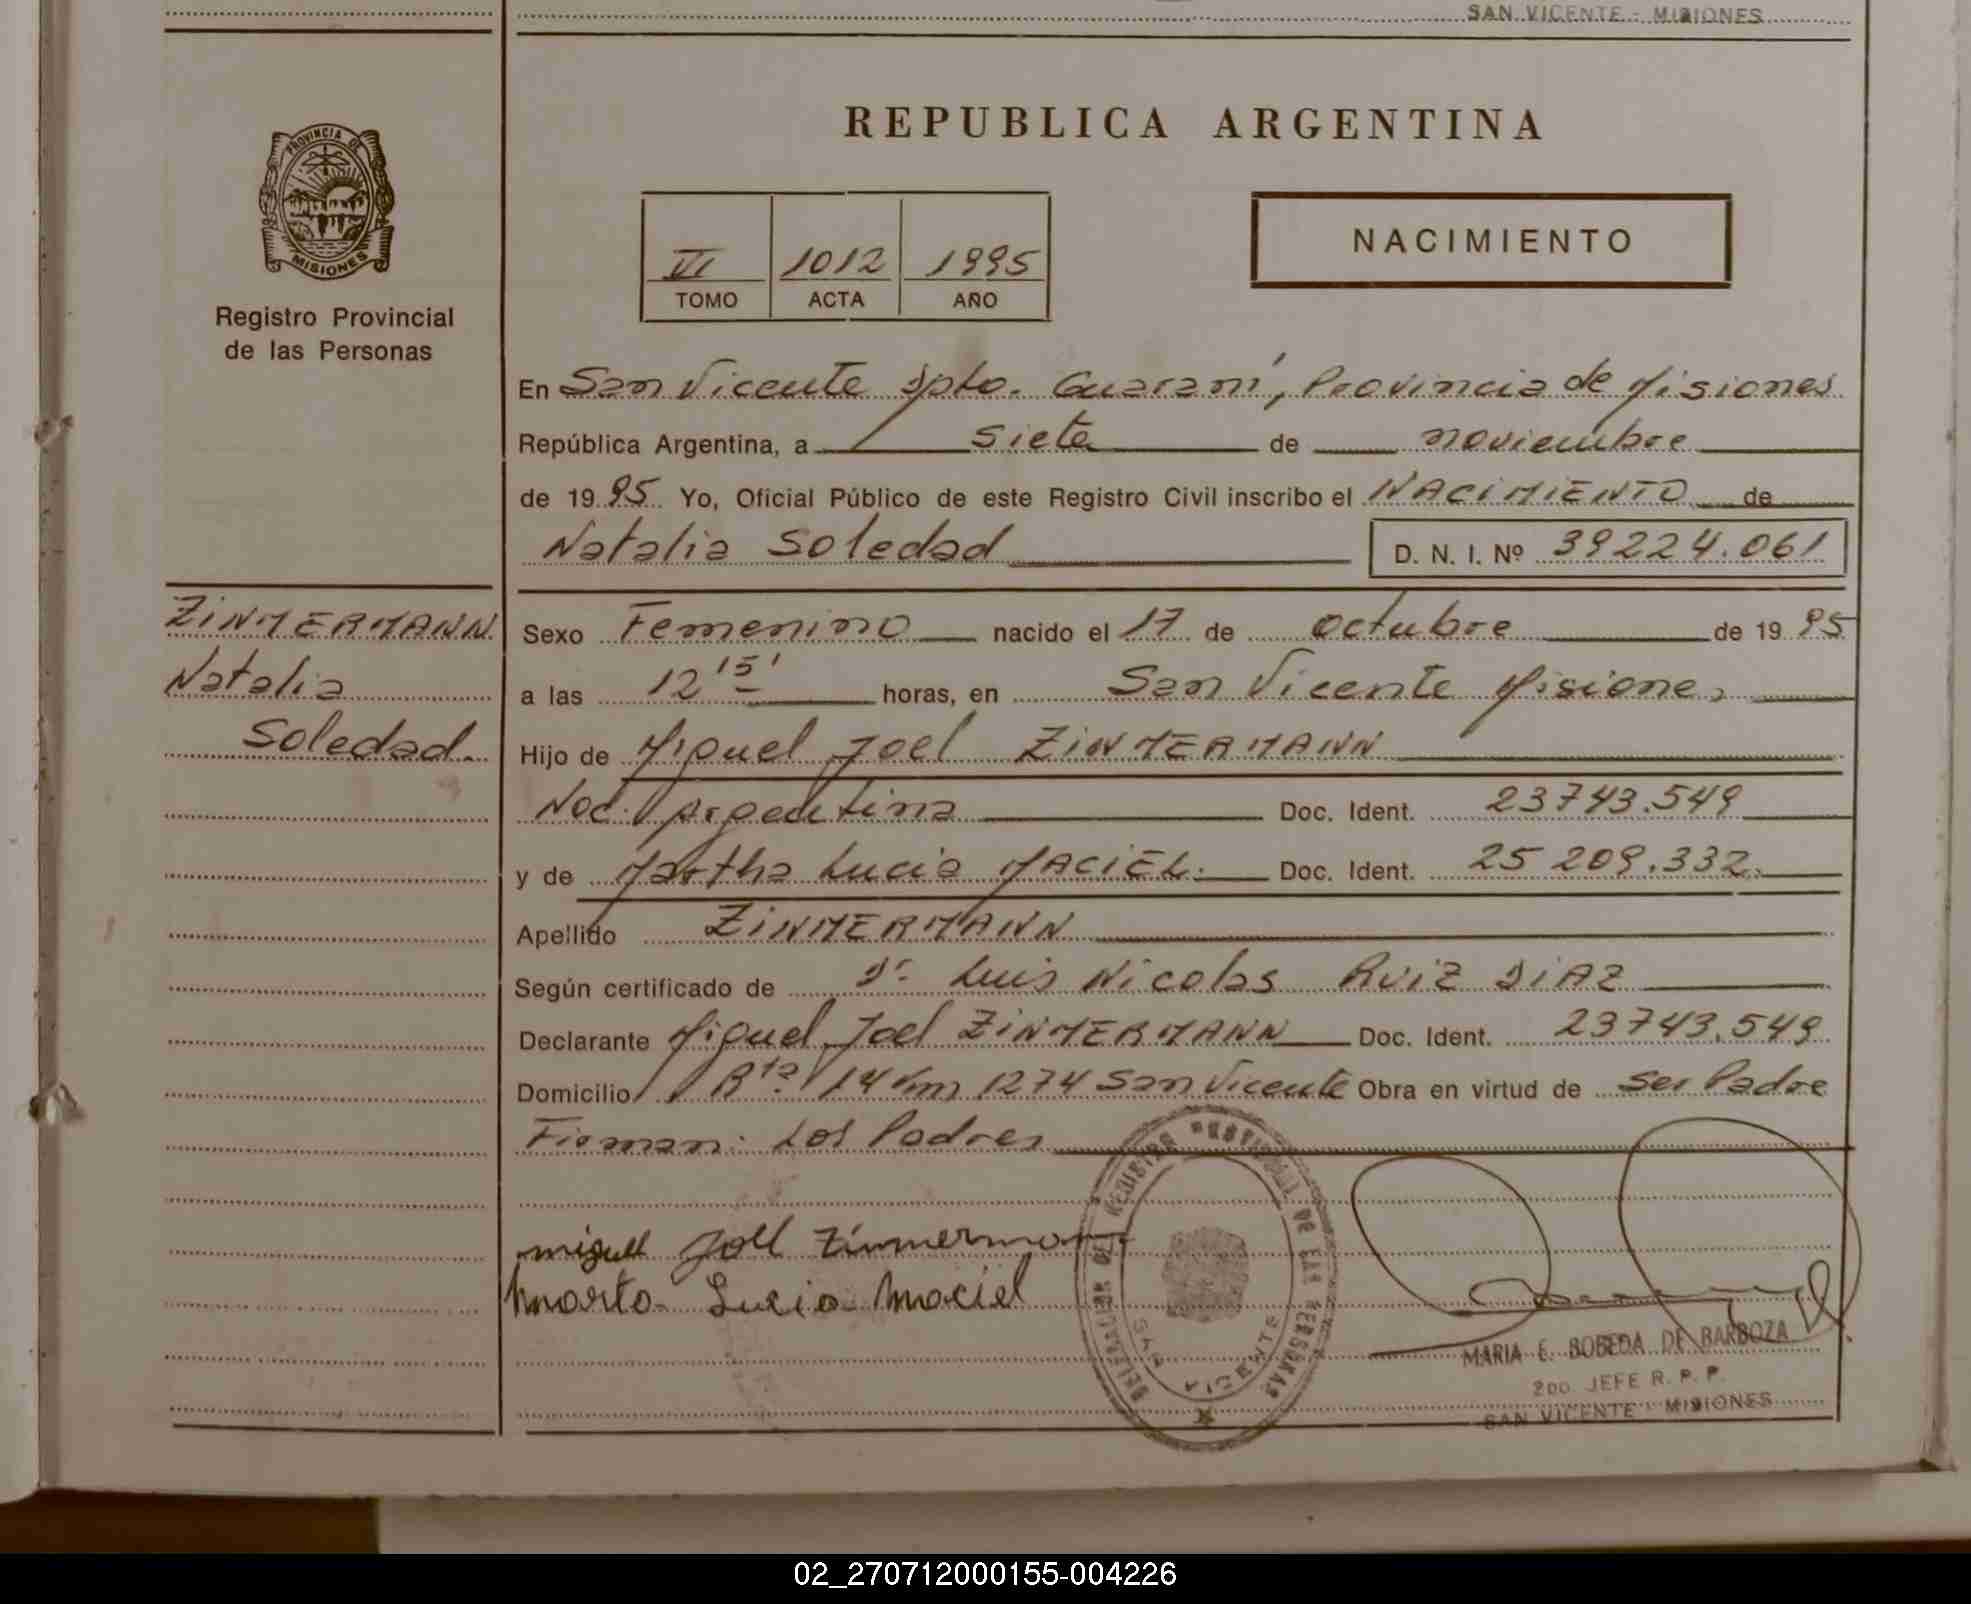 SAN VICENTE - MISIONES
REPUBLICA ARGENTINA
PROVINCIA DE
MISIONES
Registro Provincial
de las Personas
VI 1012 1995
TOMO ACTA AÑO
NACIMIENTO
En San Vicente Dpto. Guaraní, Provincia de Misiones
República Argentina, a siete de noviembre
de 1995 Yo, Oficial Público de este Registro Civil inscribo el NACIMIENTO de
Natalia Soledad D. N. I. Nº 39224.061
ZINMERMANN
Natalia
Soledad.
Sexo Femenino nacido el 17 de octubre de 1995
a las 12 15' horas, en San Vicente Misiones
Hijo de Miguel Joel ZINMERMANN
Nac. Argentina Doc. Ident. 23743.549
y de Martha Lucia MACIEL. Doc. Ident. 25 209.332.
Apellido ZINMERMANN
Según certificado de Dr. Luis Nicolas RUIZ DIAZ
Declarante Miguel Joel ZINMERMANN Doc. Ident. 23743.549
Domicilio Rta 14 Km 1274 San Vicente Obra en virtud de ser Padre
Firman: Los Padres
miguel Joel Zinmermann
Marta Lucia Maciel
DELEGACION DE REGISTRO PROVINCIAL DE LAS PERSONAS
SAN VICENTE
MARIA E. BOBEDA DE BARBOZA
2DO JEFE R. P. P.
SAN VICENTE - MISIONES
02_270712000155-004226